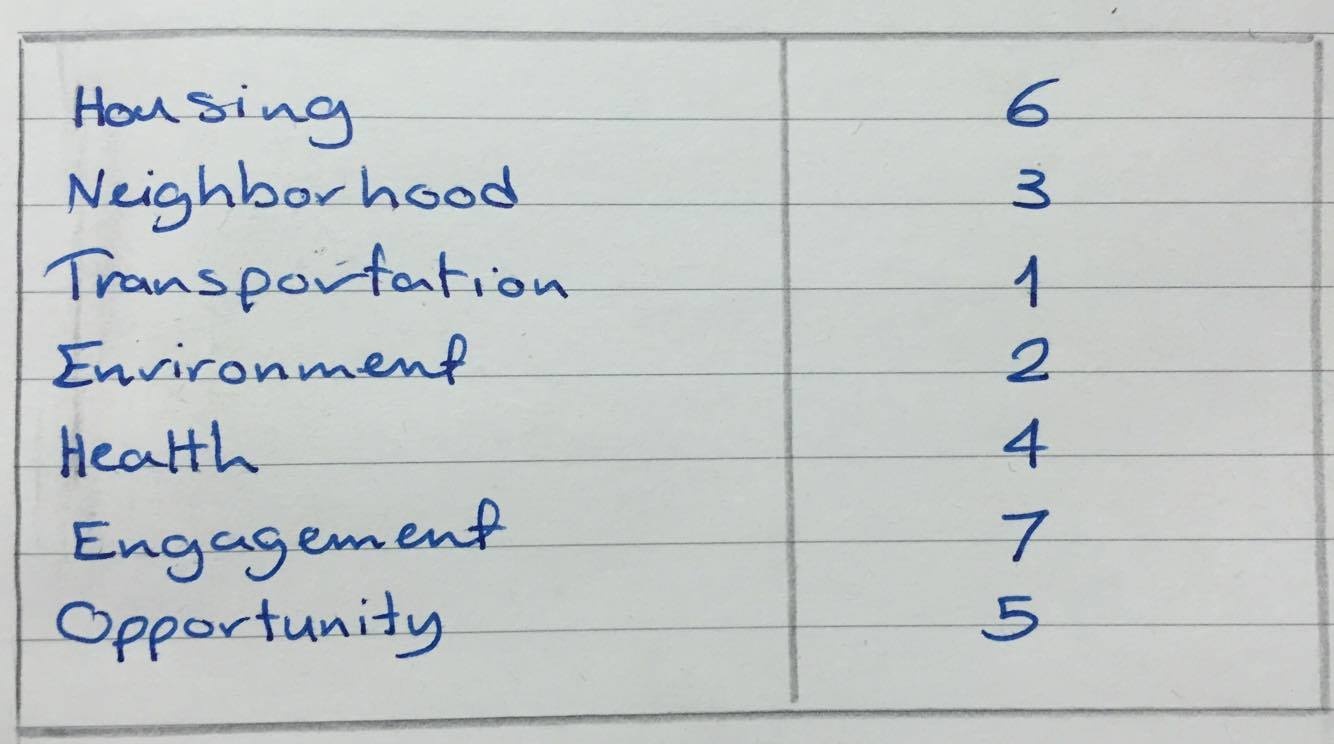 Housing 6
Neighborhood 3
Transportation 1
Environment 2
Health 4
Engagement 7
Opportunity 5